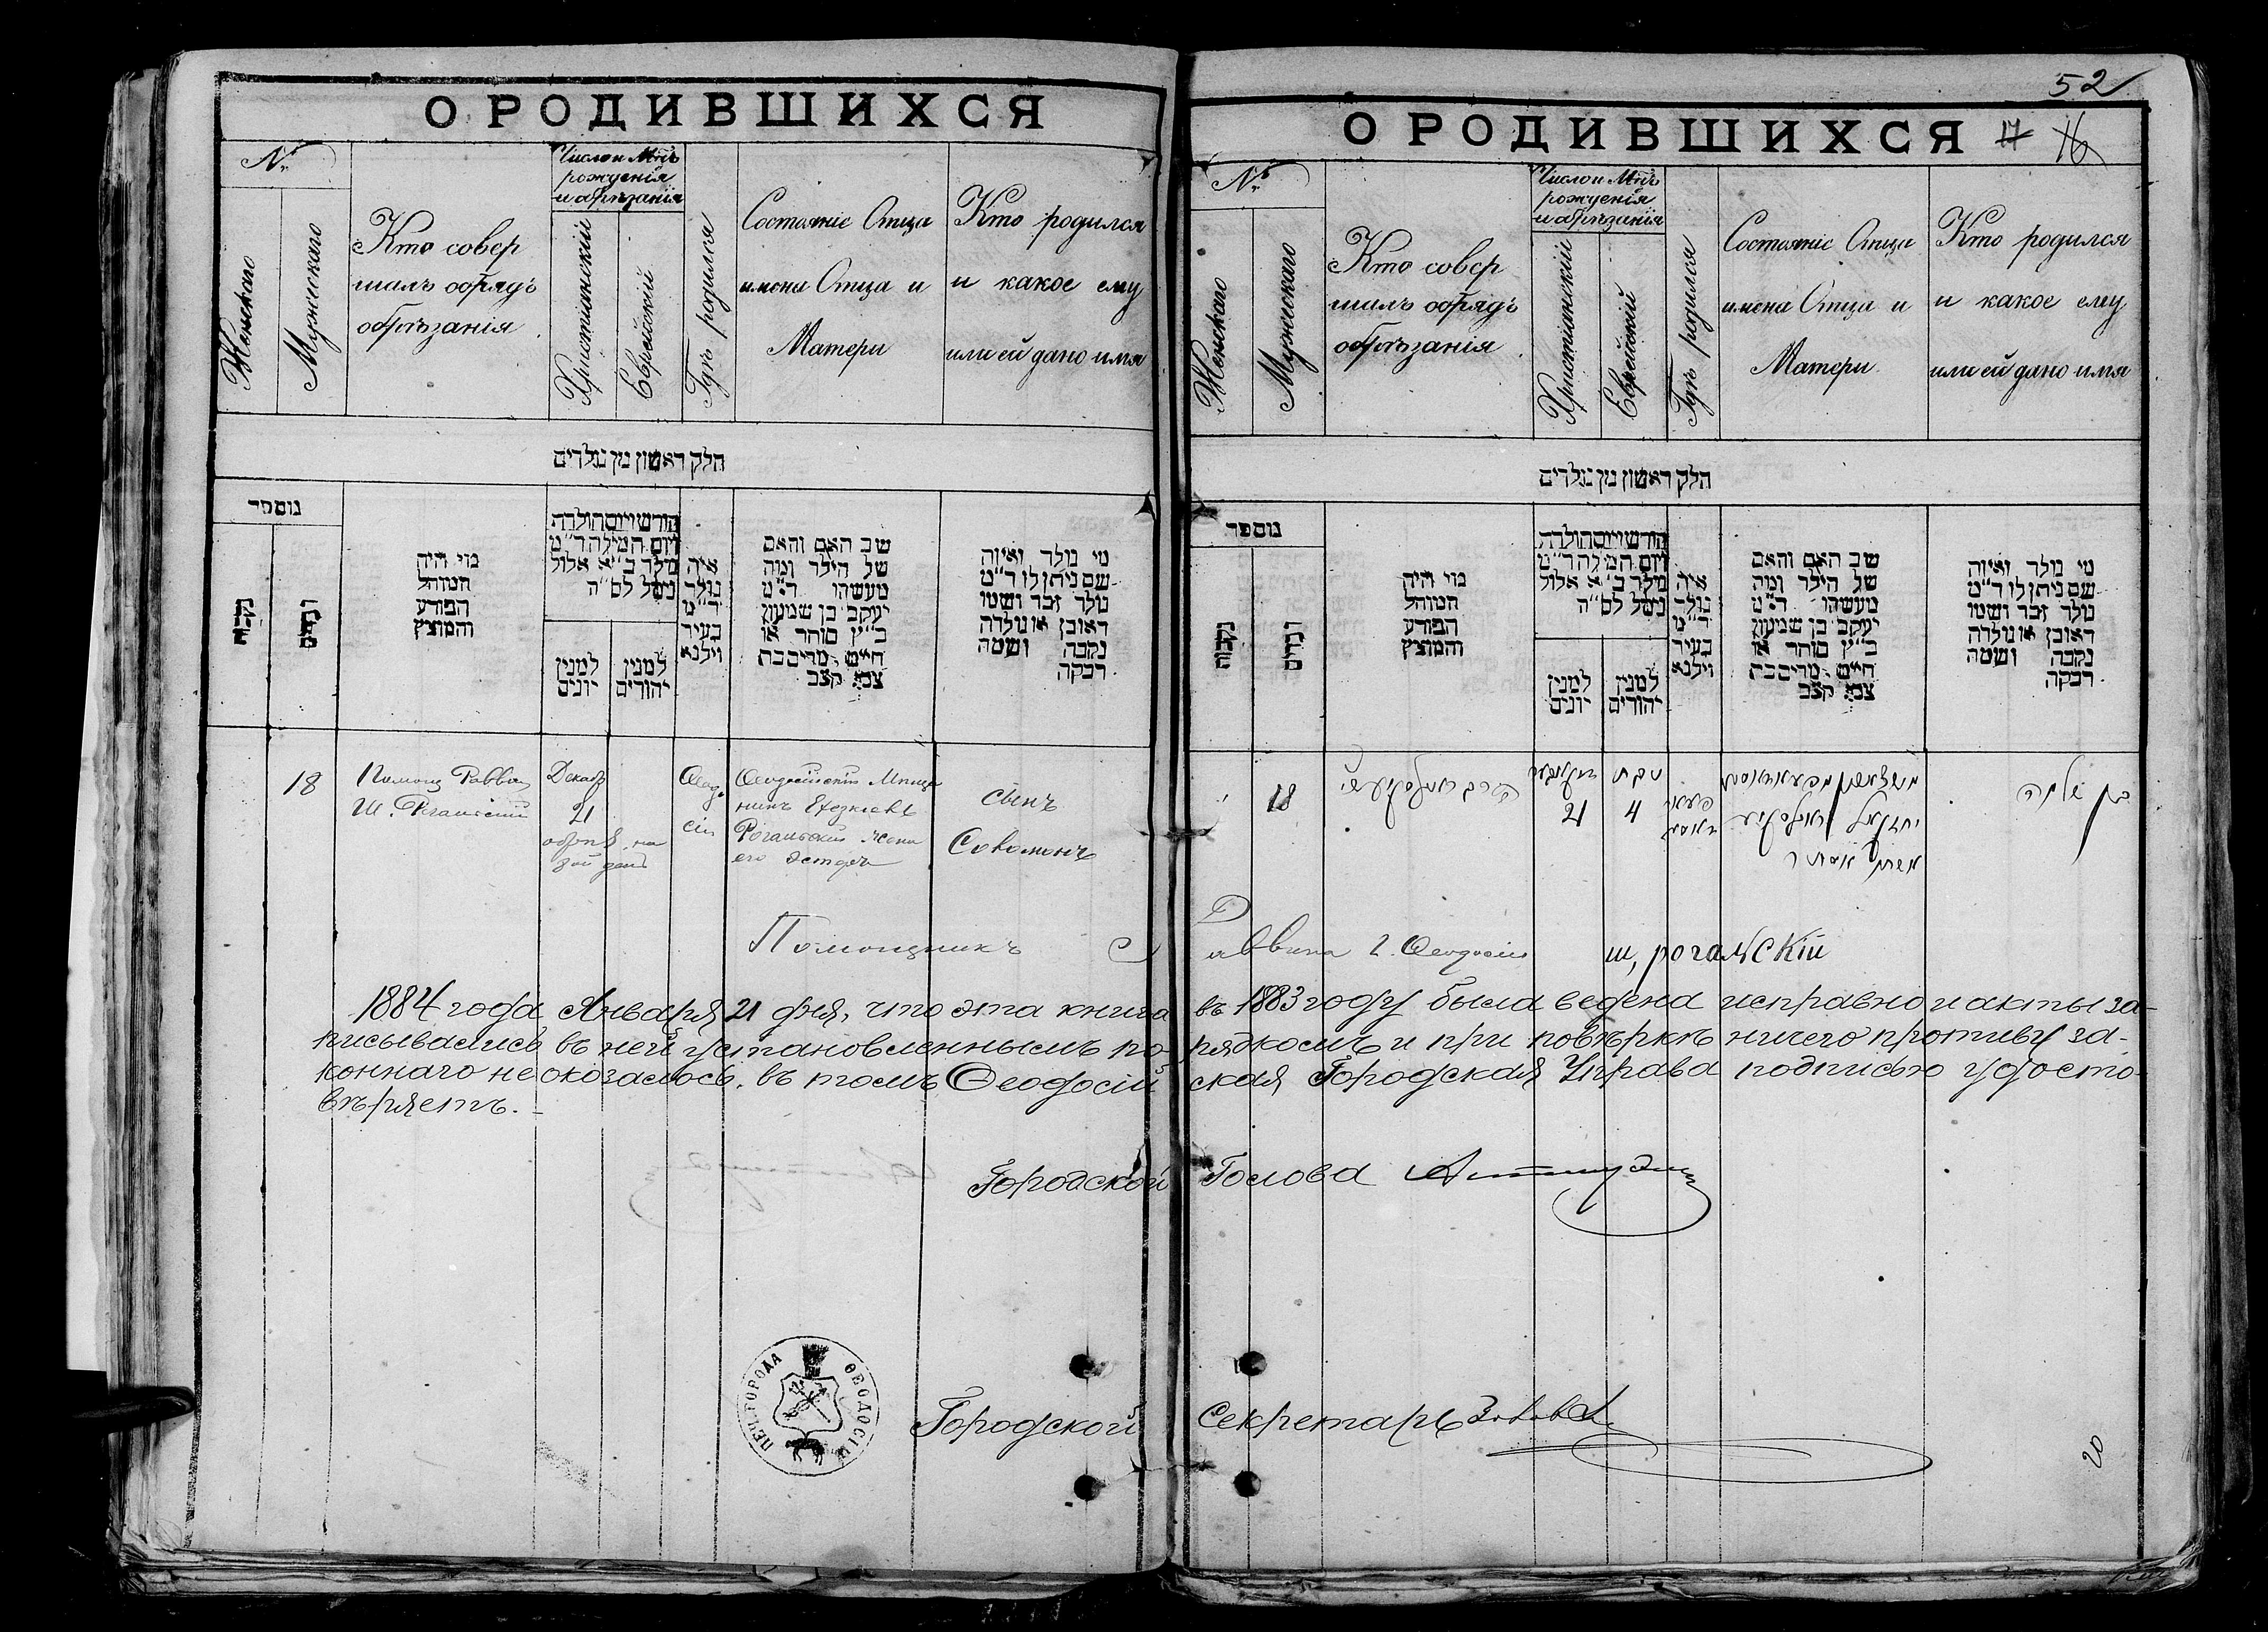 О РОДИВШИХСЯ
№
Женскаго
Мужескаго
Кто совер
шалъ обрядъ
обрѣзанія
Число и Мѣц
рожденія
и обрѣзанія
Христіанскій
Еврейскій
Гдѣ родился
Состояніе Отца
имена Отца и
Матери
Кто родился
и какое ему
или ей дано имя
חלק ראשון מן נולדים
מוספר
נקבות
זכרים
מי היה
המוהל
הפורע
והמוצץ
חודש ויום הולדה
ויום המילה ד״מ
נולד ב״א אלול
נימל לס״ה
למנין
יונים
למנין
יהודים
איה
נולד
ד״מ
בעיר
וילנא
שב האם והאם
של הילד ומה
מעשהו ד״מ
יעקב בן שמעון
כ״ץ סוחר או
חייט מרים בת
צבי קצב
מי נולד ואיזה
שם ניתן לו ד״מ
נולד זכר ושמו
ראובן או נולדה
נקבה ושמה
רבקה
18
Помощ Раввин
Ш. Рогальскій
Декабр
21
обрѣз. на
8ой день
Ѳеодо
сіи
Ѳеодосійскій Мѣща
нинъ Ехезкіель
Рогальскій жена
его Эстеръ
сынъ
Соломонъ
52
О РОДИВШИХСЯ 17 16
№
Женскаго
Мужескаго
Кто совер
шалъ обрядъ
обрѣзанія
Число и Мѣц
рожденія
и обрѣзанія
Христіанскій
Еврейскій
Гдѣ родился
Состояніе Отца
имена Отца и
Матери
Кто родился
и какое ему
или ей дано имя
חלק ראשון מן נולדים
מוספר
נקבות
זכרים
מי היה
המוהל
הפורע
והמוצץ
חודש ויום הולדה
ויום המילה ד״מ
נולד ב״א אלול
נימל לס״ה
למנין
יונים
למנין
יהודים
איה
נולד
ד״מ
בעיר
וילנא
שב האם והאם
של הילד ומה
מעשהו ד״מ
יעקב בן שמעון
כ״ץ סוחר או
חייט מרים בת
צבי קצב
מי נולד ואיזה
שם ניתן לו ד״מ
נולד זכר ושמו
ראובן או נולדה
נקבה ושמה
רבקה
18
21
טבת
4
יחזקאל ראגאלסקי
אסתר
בן שלמה
Помощникъ Раввина г. Ѳеодосіи ш, рогалскій
1884 года Января 21 дня, что эта книга въ 1883 году была ведена исправно и акты за-
писывались въ ней установленнымъ по- рядкомъ и при повѣркѣ ничего противу за-
коннаго не оказалось, въ томъ Ѳеодосій ская Городская Управа подписью удосто-
вѣряетъ.-
Городской Голова
ПЕЧ. ГОРОДА ѲЕОДОСІИ
Городской Секретарь
20